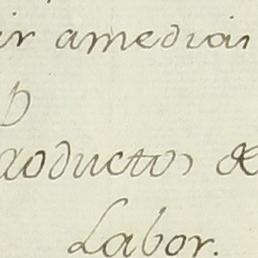 ir amedias
D
roductos de
Labor.